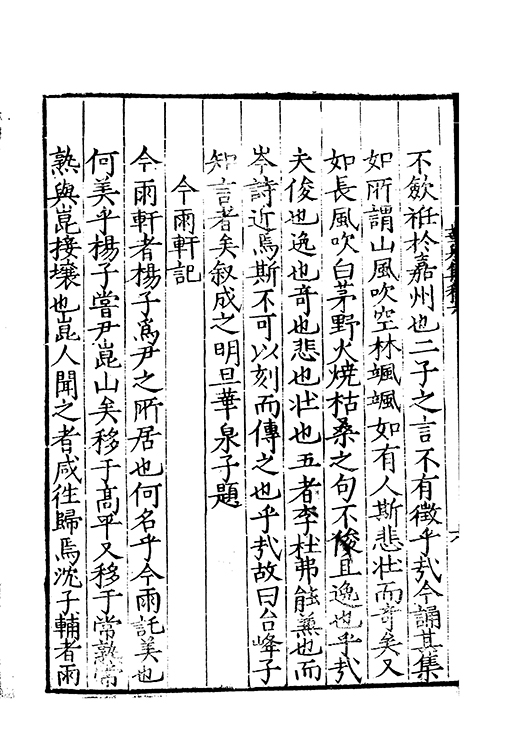 不歛袵於嘉州也二子之言不有徵乎㢤今誦其集
如所謂山風吹空林颯颯如有人斯悲壯而竒矣又
如長風吹白茅野火燒枯桑之句不俊且逸也乎㢤
夫俊也逸也竒也悲也壯也五者李杜弗能兼也而
岑詩近焉斯不可以刻而傳之也乎㢤故曰台峰子
知言者矣叙成之明旦華泉子題
今雨軒記
今雨軒者楊子爲尹之所居也何名乎今雨託美也
何美乎楊子嘗尹崑山矣移于髙平又移于常熟常
熟與崑接壤也崑人聞之者咸徃歸焉沈子輔者雨